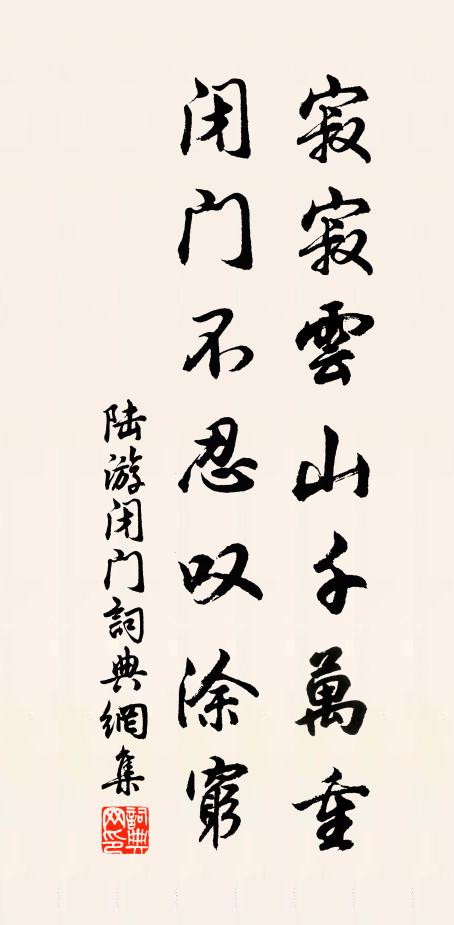 寂寂雲山千萬重
闭门不忍叹涂窮
陆游闭门詞典網集
詞典网印